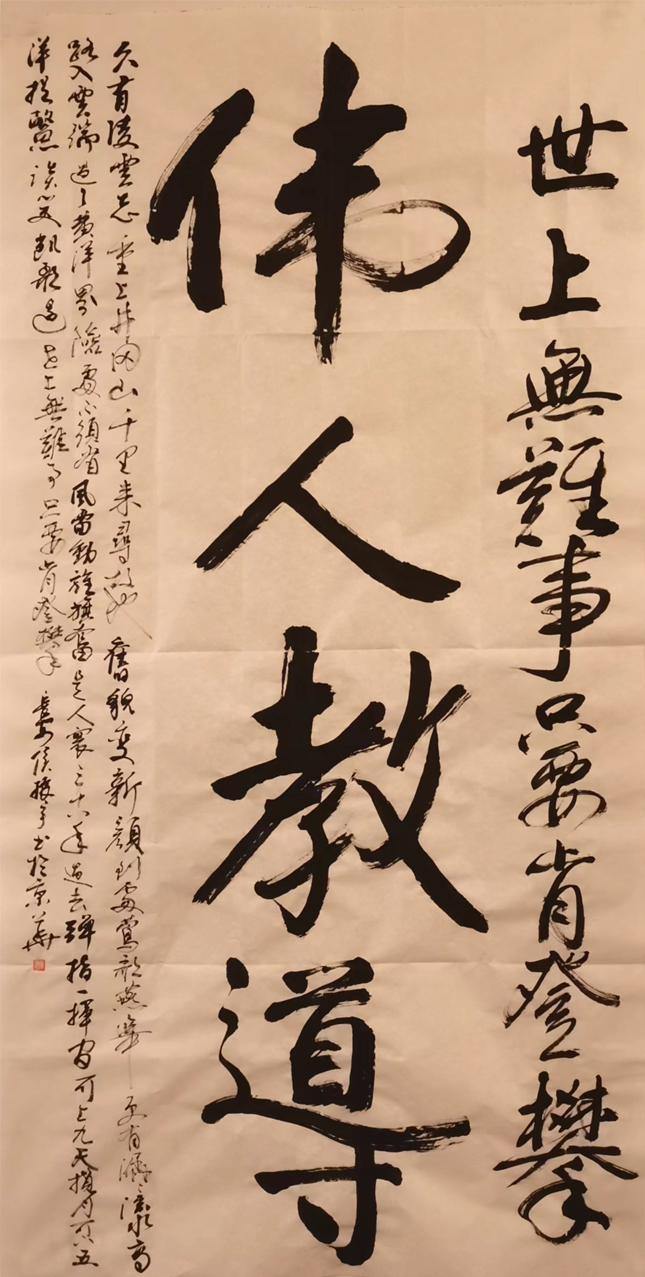 世上無難事只要肯登攀
伟人教導
久有陵雲志重上井岡山千里来尋故地舊貌變新顏到處鶯歌燕舞更有潺潺流水高
路入雲端過了黃洋界險處不須看風雷動旌旗奮是人寰三十八年過去彈指一揮間可上九天攬月可下五
洋捉鱉談笑凱歌還世上無難事只要肯登攀侯振书於京華